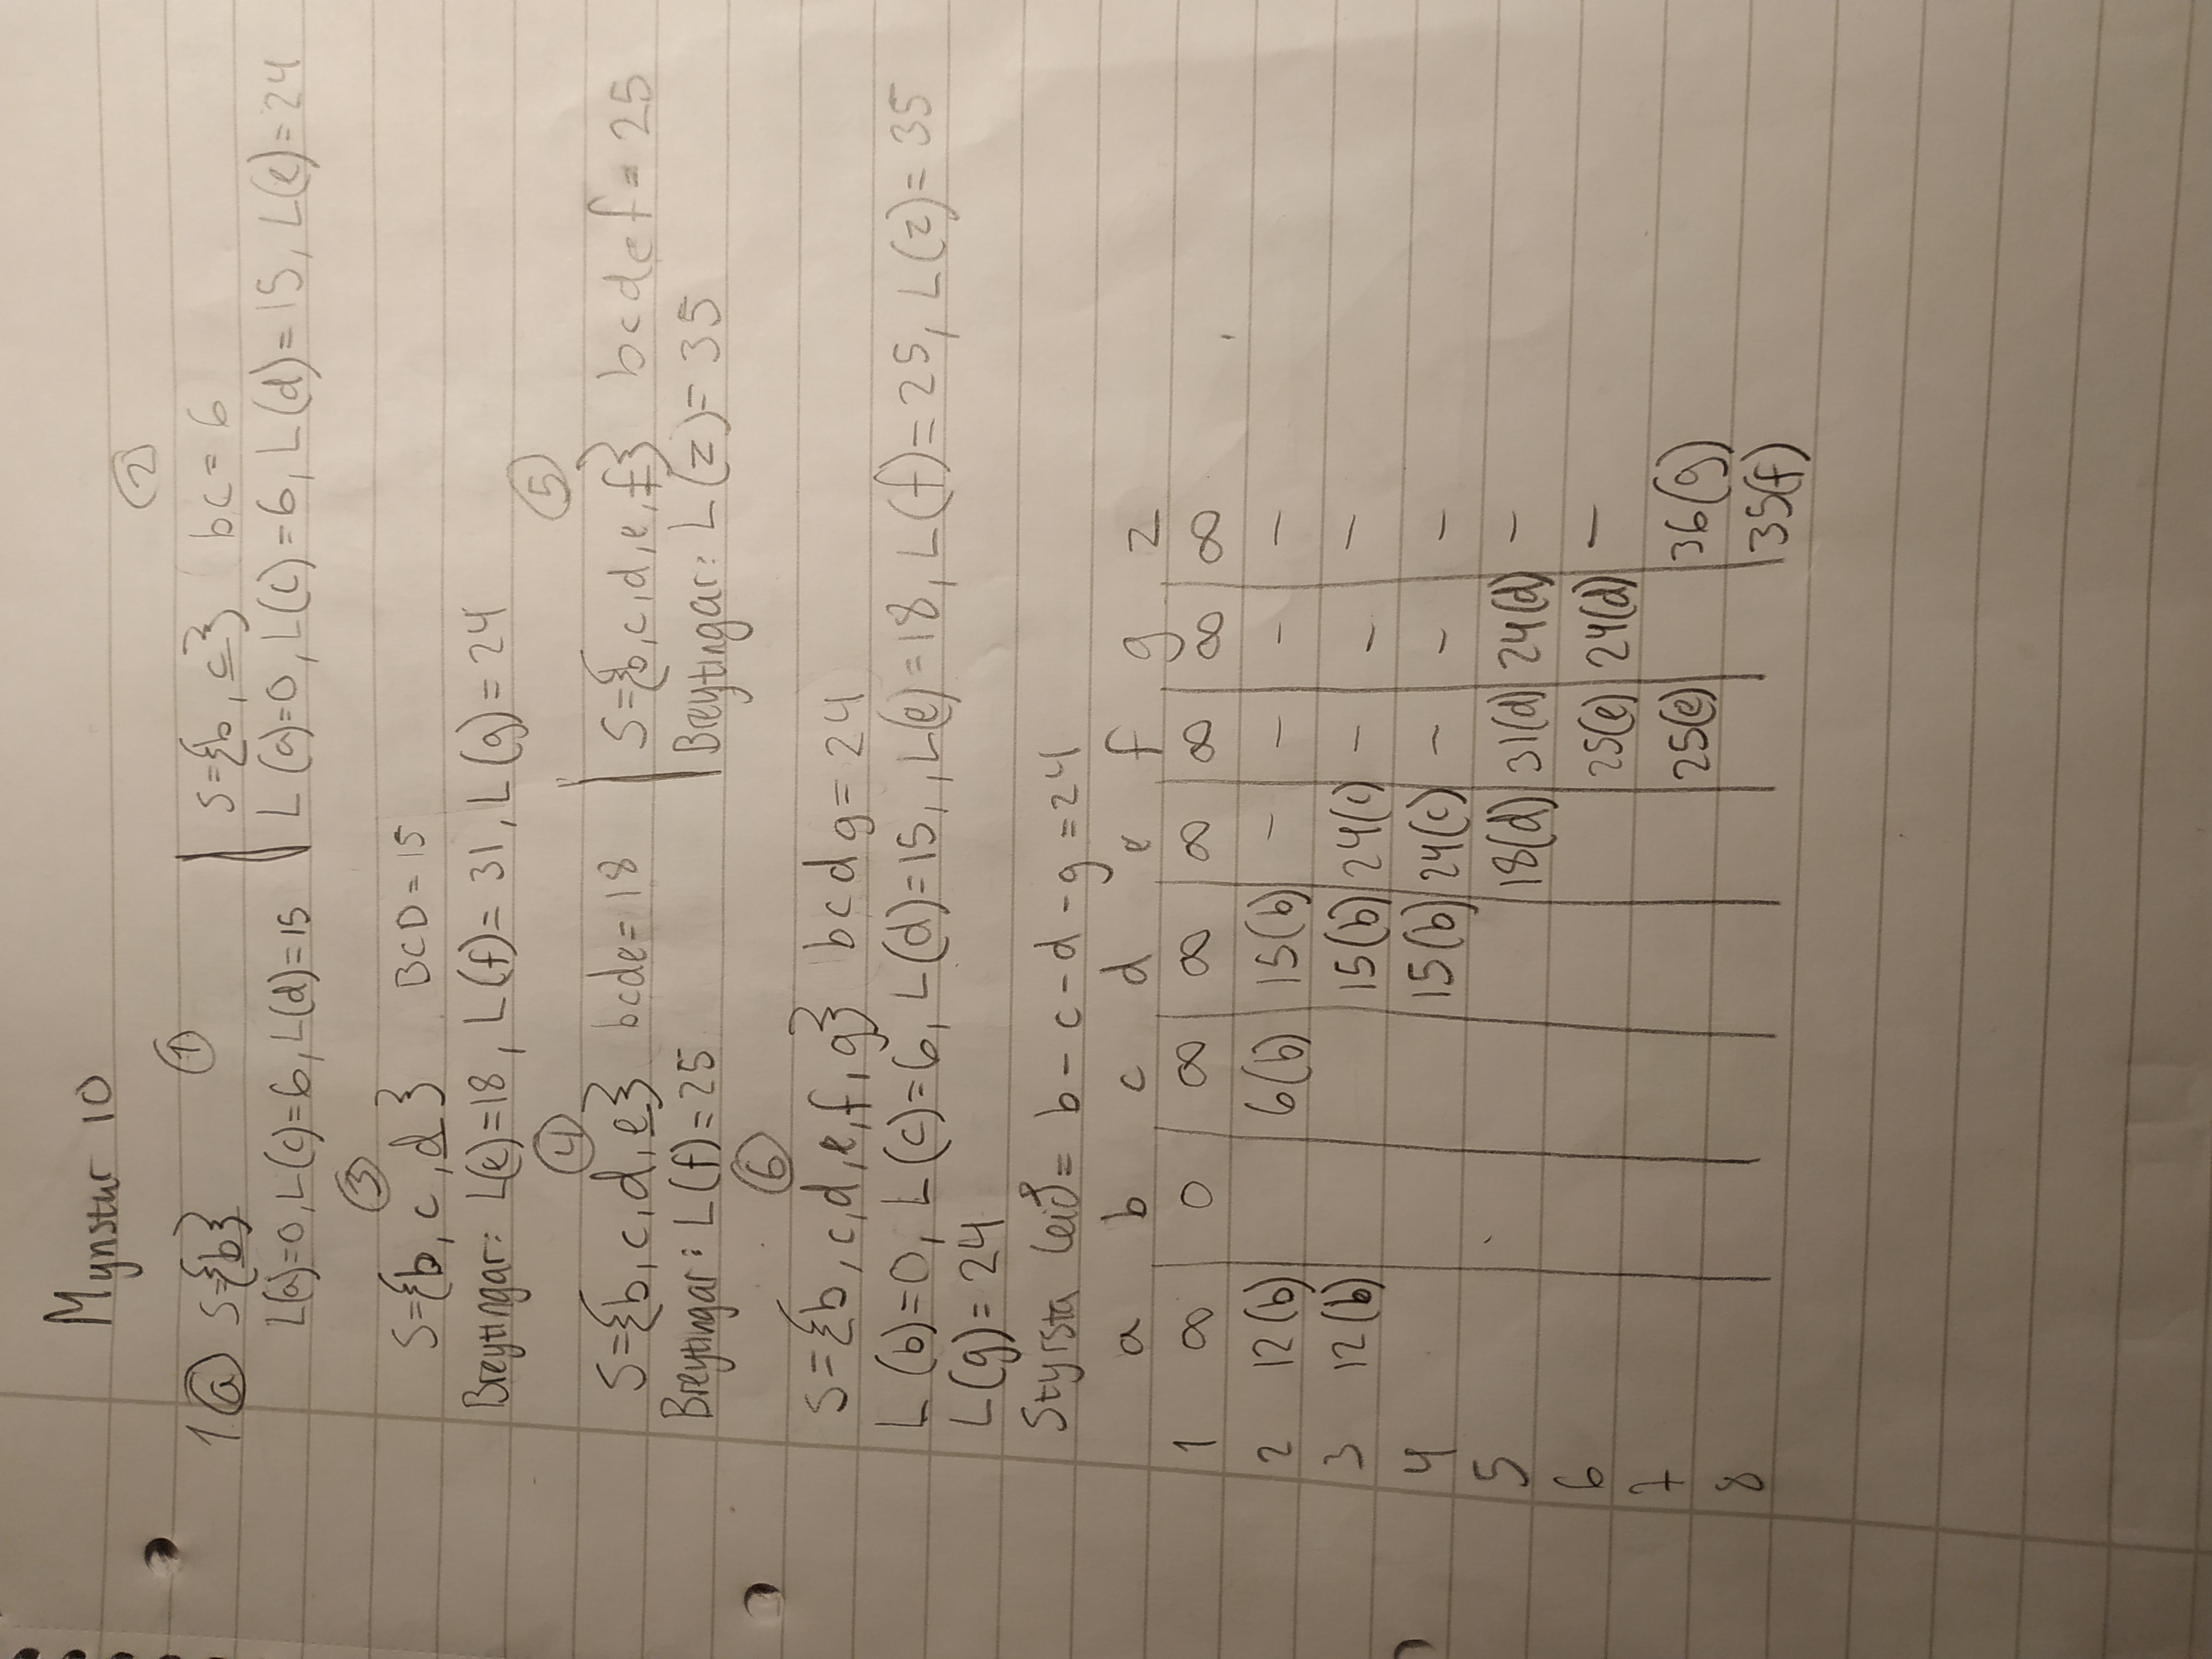 Mynstur 10
1 a S={b} 1
L(a)=0, L(c)=6, L(d)=15
2
S={b, c} bc=6
L(a)=0, L(c)=6, L(d)=15, L(e)=24
3
S={b, c, d} BCD=15
Breytingar: L(e)=18, L(f)=31, L(g)=24
4
S={b, c, d, e} bcde=18
Breytingar: L(f)=25
5
S={b, c, d, e, f} bcdef=25
Breytingar: L(z)=35
6
S={b, c, d, e, f, g} bcdg=24
L(b)=0, L(c)=6, L(d)=15,, L(e)=18, L(f)=25, L(z)=35
L(g)=24
Styrsta leið= b-c-d-g=24
a b c d e f g z
1 ∞ 0 ∞ ∞ ∞ ∞ ∞ ∞
2 12(b) 6(b) 15(b) - - - -
3 12(b) 15(b) 24(c) - - -
4 15(b) 24(c) - - -
5 18(d) 31(d) 24(d) -
6 25(e) 24(d) -
7 25(e) 36(g)
8 35(f)